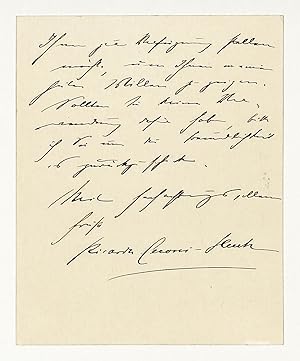 Ihnen zur Verfügung stellen
möchte, um Ihnen meinen
guten Willen zu zeigen.
Sollten Sie keine Ver-
wendung dafür haben, bitte
ich Sie um die Freundlichkeit
es zurückzu
Mit hochachtungsvollem
Gruß
Ricarda Ceconi-Huch